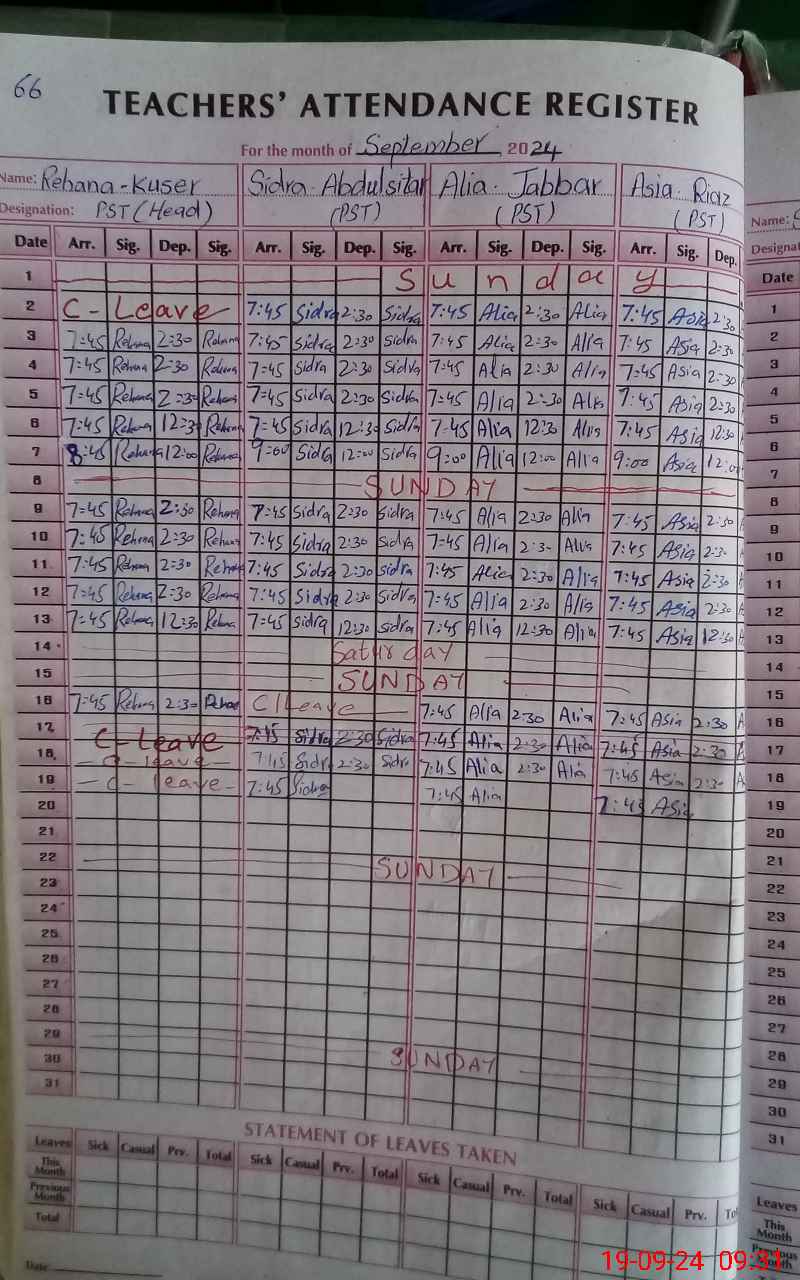 66
TEACHERS' ATTENDANCE REGISTER
For the month of September, 2024
Name: Rehana-Kuser Sidra Abdulsitar Alia Jabbar Asia Riaz Name: S
Designation: PST (Head) (PST) (PST) (PST) Designat
Date Arr. Sig. Dep. Sig. Arr. Sig. Dep. Sig. Arr. Sig. Dep. Sig. Arr. Sig. Dep. Date
1 Sunday 1
2 C-Leave 7:45 Sidra 2:30 Sidra 7:45 Alia 2:30 Alia 7:45 Asia 2:30 2
3 7:45 Rehana 2:30 Rehana 7:45 Sidra 2:30 Sidra 7:45 Alia 2:30 Alia 7:45 Asia 2:30 3
4 7:45 Rehana 2:30 Rehana 7:45 Sidra 2:30 Sidra 7:45 Alia 2:30 Alia 7:45 Asia 2:30 4
5 7:45 Rehana 2:30 Rehana 7:45 Sidra 2:30 Sidra 7:45 Alia 2:30 Alia 7:45 Asia 2:30 5
6 7:45 Rehana 12:30 Rehana 7:45 Sidra 12:30 Sidra 7:45 Alia 12:30 Alia 7:45 Asia 12:30 6
7 8:45 Rehana 12:00 Rehana 9:00 Sidra 12:00 Sidra 9:00 Alia 12:00 Alia 9:00 Asia 12:00 7
8 SUNDAY 8
9 7:45 Rehana 2:30 Rehana 7:45 Sidra 2:30 Sidra 7:45 Alia 2:30 Alia 7:45 Asia 2:30 9
10 7:45 Rehana 2:30 Rehana 7:45 Sidra 2:30 Sidra 7:45 Alia 2:30 Alia 7:45 Asia 2:30 10
11 7:45 Rehana 2:30 Rehana 7:45 Sidra 2:30 Sidra 7:45 Alia 2:30 Alia 7:45 Asia 2:30 11
12 7:45 Rehana 2:30 Rehana 7:45 Sidra 2:30 Sidra 7:45 Alia 2:30 Alia 7:45 Asia 2:30 12
13 7:45 Rehana 12:30 Rehana 7:45 Sidra 12:30 Sidra 7:45 Alia 12:30 Alia 7:45 Asia 12:30 13
14 Saturday 14
15 SUNDAY 15
16 7:45 Rehana 2:30 Rehana C/Leave 7:45 Alia 2:30 Alia 7:45 Asia 2:30 A 16
17 C-Leave 7:45 Sidra 2:30 Sidra 7:45 Alia 2:30 Alia 7:45 Asia 2:30 A 17
18 C-leave 7:45 Sidra 2:30 Sidra 7:45 Alia 2:30 Alia 7:45 Asia 2:30 A 18
19 C-leave 7:45 Sidra 7:45 Alia 7:45 Asia 19
20 20
21 21
22 SUNDAY 22
23 23
24 24
25 25
26 26
27 27
28 28
29 SUNDAY 29
30 30
31 31
STATEMENT OF LEAVES TAKEN
Leaves Sick Casual Prv. Total Sick Casual Prv. Total Sick Casual Prv. Total Sick Casual Prv. To Leaves
This Month This Month
Previous Month Previous Month
Total
Date
19-09-24 09:31